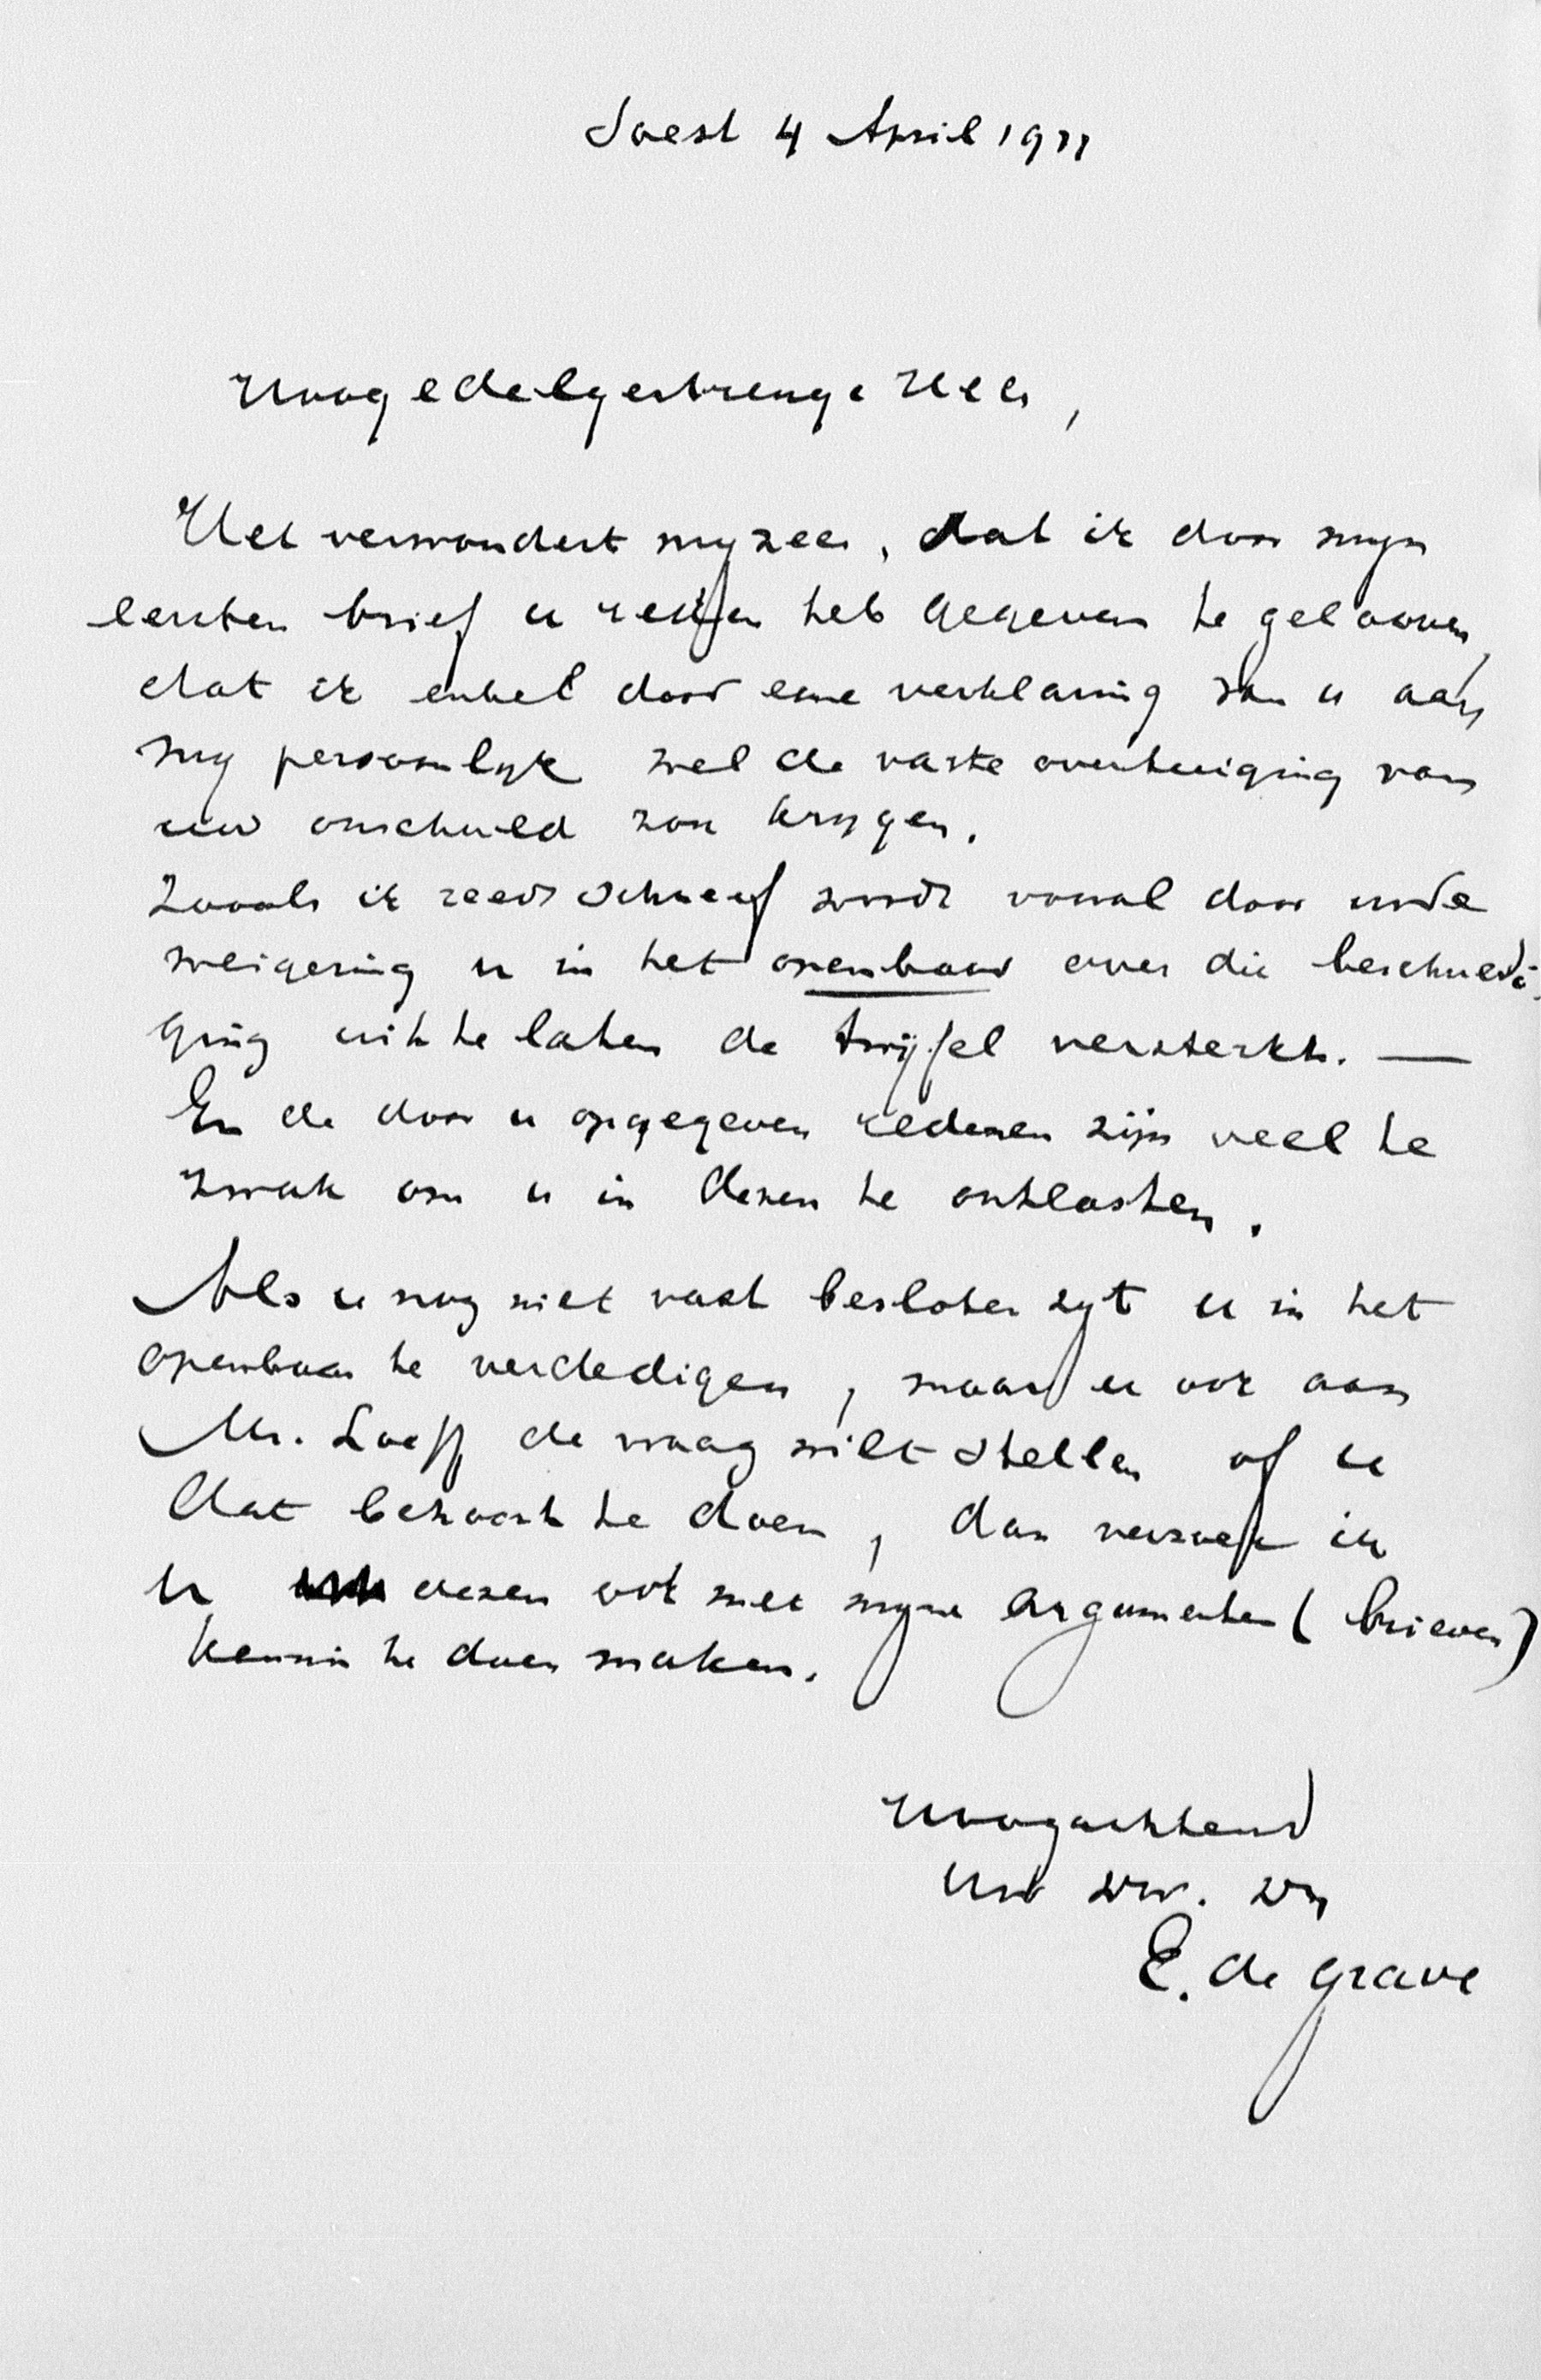 Soest 4 April 1911
Hoogedelgestrenge Heer,
Het verwondert my zeer, dat ik door myn
eersten brief u reden heb gegeven te gelooven,
dat ik enkel door eene verklaring van u aan
my persoonlyk wel de vaste overtuiging van
uw onschuld zou krygen.
Zooals ik reeds schreef wordt vooral door uwe
weigering u in het openbaar over die beschuldi-
ging uit te laten de twijfel versterkt. —
En de door u opgegeven redenen zijn veel te
zwak om u in dezen te ontlasten.
Als u nog niet vast besloten zyt u in het
openbaar te verdedigen, maar u ook aan
Mr. Loeff de vraag wilt stellen of u
dat behoort te doen, dan verzoek ik
u dezen ook met myne argumenten (brieven)
kennis te doen maken.
Hoogachtend
Uw dw. dn
E. de Grave